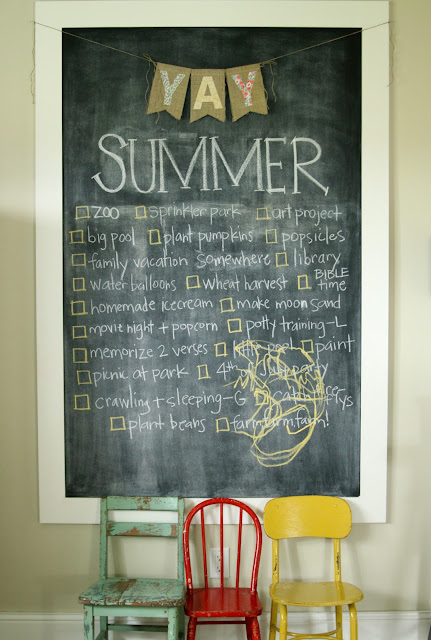 YAY
SUMMER
ZOO sprinkler park art project
big pool plant pumpkins popsicles
family vacation somewhere library
water balloons wheat harvest BIBLE time
homemade icecream make moon sand
movie night + popcorn potty training-L
memorize 2 verses little pool paint
picnic at park 4th of July party
crawling + sleeping-G catch
plant beans farm farm farm!